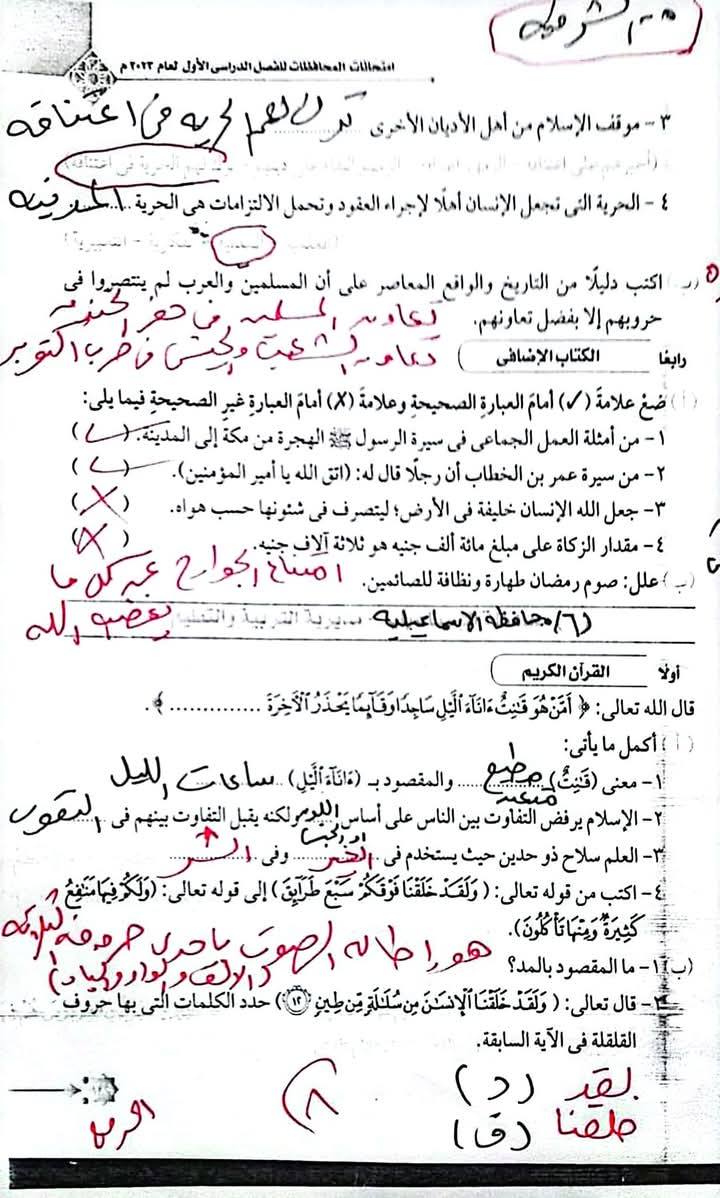 امتحانات المحافظات للفصل الدراسى الأول لعام ٢٠٢٣ م
٣- موقف الإسلام من أهل الأديان الأخرى ترك لهم الحرية فى اعتناقه
٤- الحرية التى تجعل الإنسان أهلًا لإجراء العقود وتحمل الالتزامات هى الحرية المدنية
(ب) اكتب دليلًا من التاريخ والواقع المعاصر على أن المسلمين والعرب لم ينتصروا فى
حروبهم إلا بفضل تعاونهم. تعاون المسلمين فى حفر الخندق
تعاون الشعب والجيش فى حرب أكتوبر
رابعًا الكتاب الإضافى
(أ) ضعْ علامةَ (✓) أمامَ العبارةِ الصحيحةِ وعلامةَ (✗) أمامَ العبارةِ غيرِ الصحيحةِ فيما يلى:
١- من أمثلة العمل الجماعى فى سيرة الرسول ﷺ الهجرة من مكة إلى المدينة. (✓)
٢- من سيرة عمر بن الخطاب أن رجلًا قال له: (اتق الله يا أمير المؤمنين). (✓)
٣- جعل الله الإنسان خليفة فى الأرض؛ ليتصرف فى شئونها حسب هواه. (✗)
٤- مقدار الزكاة على مبلغ مائة ألف جنيه هو ثلاثة آلاف جنيه. (✗)
(ب) علل: صوم رمضان طهارة ونظافة للصائمين. امتناع الجوارح عن كل ما
يغضب الله
(٦) محافظة الاسماعيلية مديرية التربية والتعليم
أولًا القرآن الكريم
قال الله تعالى: ﴿ أَمَّنْ هُوَ قَٰنِتٌ ءَانَآءَ ٱلَّيْلِ سَاجِدًا وَقَآئِمًا يَحْذَرُ ٱلْآخِرَةَ .............. ﴾.
(أ) أكمل ما يأتى:
١- معنى (قَٰنِتٌ) مطيع والمقصود بـ (ءَانَآءَ ٱلَّيْلِ) ساعات الليل
متعبد
٢- الإسلام يرفض التفاوت بين الناس على أساس اللون ولكنه يقبل التفاوت بينهم فى التقوى
أو الجنس
٣- العلم سلاح ذو حدين حيث يستخدم فى الخير وفى الشر
٤- اكتب من قوله تعالى: (وَلَقَدْ خَلَقْنَا فَوْقَكُمْ سَبْعَ طَرَآئِقَ) إلى قوله تعالى: (وَلَكُمْ فِيهَا مَنَٰفِعُ
كَثِيرَةٌ وَمِنْهَا تَأْكُلُونَ).
(ب) ١- ما المقصود بالمد؟ هو إطالة الصوت بإحدى حروفه الثلاثة
(الألف والواو والياء)
٢- قال تعالى: (وَلَقَدْ خَلَقْنَا ٱلْإِنسَٰنَ مِن سُلَٰلَةٍ مِّن طِينٍ ١٢) حدد الكلمات التى بها حروف
القلقلة فى الآية السابقة.
لقد (د)
خلقنا (ق)
٨